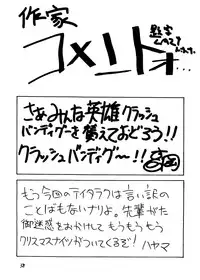 作家
コメント
さぁみんな英雄クラッシュ
バンディグーを賛えておどろう!!
クラッシュバンディグ〜!!
もう今回のテイタラクは言い訳の
ことばもないナリよ。先輩がた
御迷惑をおかけして もうもうもう
クリスマスナイツがついてくるぞ!
ハヤマ